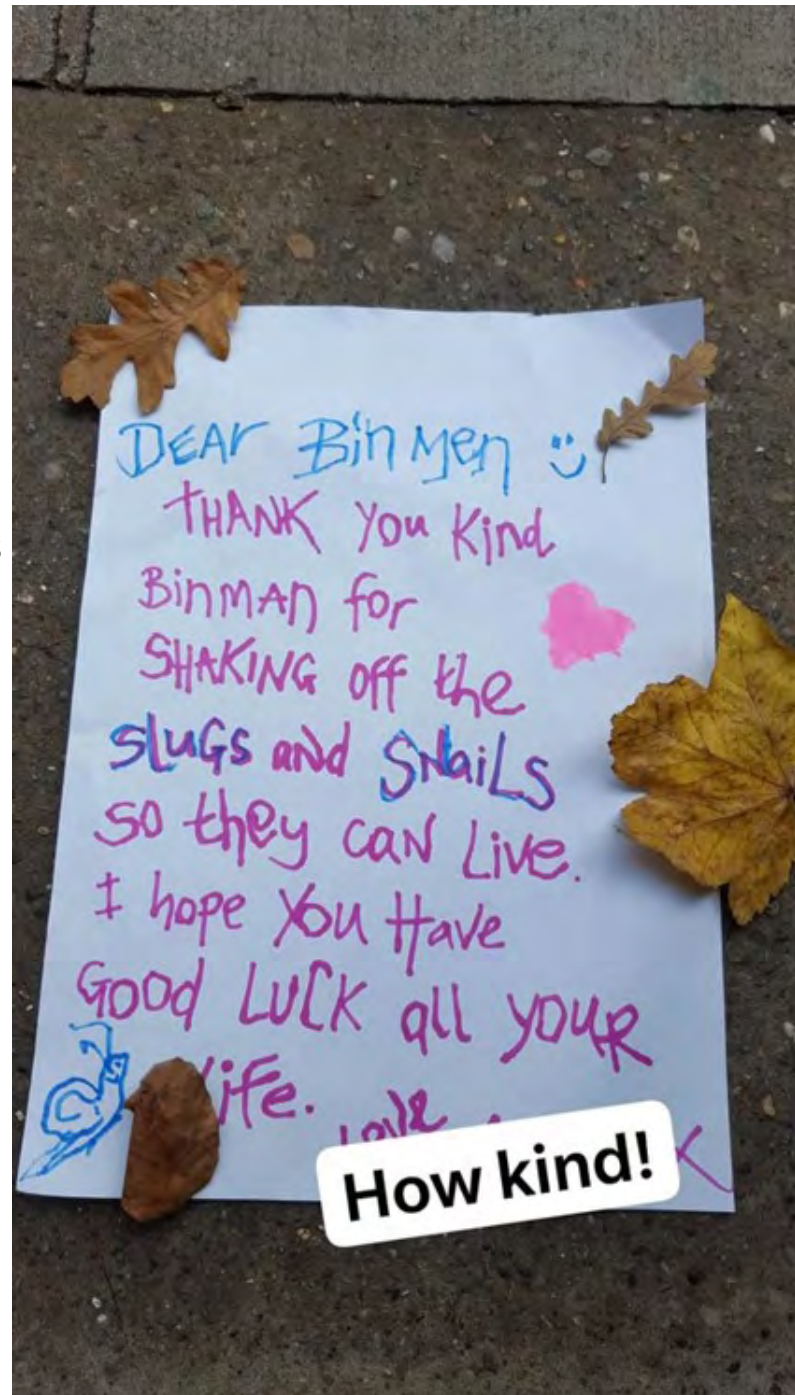 DEAr Bin Men
THANK You Kind
BinMAn for
SHAKING off the
SluGs and SNaiLs
so they caN Live.
I hope You Have
Good LUCK all youR
life.
Love
How kind!